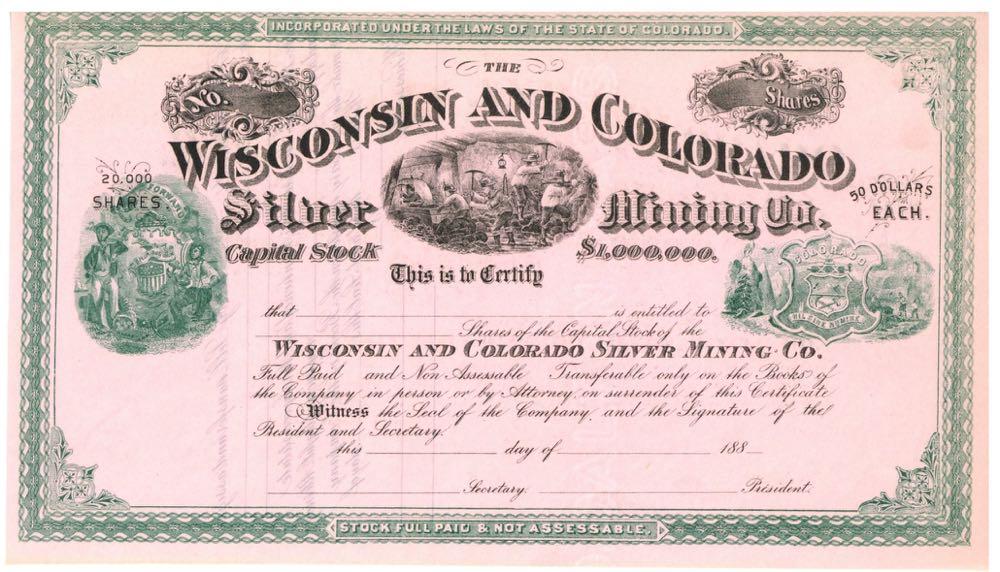 INCORPORATED UNDER THE LAWS OF THE STATE OF COLORADO.
THE
No.
Shares
WISCONSIN AND COLORADO
20.000
SHARES.
FORWARD
Silver Mining Co.
50 DOLLARS
EACH.
Capital Stock $1,000,000.
COLORADO
NIL SINE NUMINE
This is to Certify
that is entitled to
Shares of the Capital Stock of the
WISCONSIN AND COLORADO SILVER MINING CO.
Full Paid and Non Assessable Transferable only on the Books of
the Company in person or by Attorney on surrender of this Certificate
Witness the Seal of the Company, and the Signature of the
President and Secretary.
this day of 188
Secretary. President.
STOCK FULL PAID & NOT ASSESSABLE.